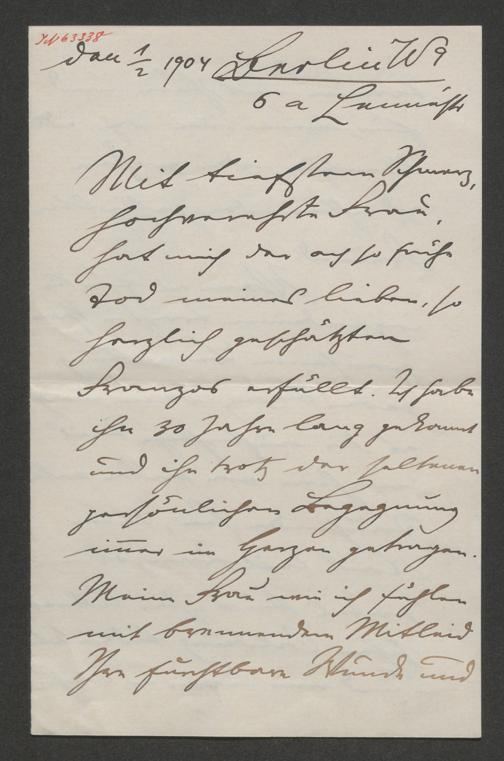 IN 63338
den 1/2 1904 Berlin W9
6 a Lennéstr
Mit tiefstem Schmerz,
hochverehrte Frau,
hat mich der ach so frühe
Tod meines lieben, so
herzlich geschätzten
Franzos erfüllt. Ich habe
ihn 30 Jahre lang gekannt
und ihn trotz der seltenen
persönlichen Begegnung
immer im Herzen getragen.
Meine Frau wie ich fühlen
mit brennendem Mitleid
Ihre furchtbare Wunde und